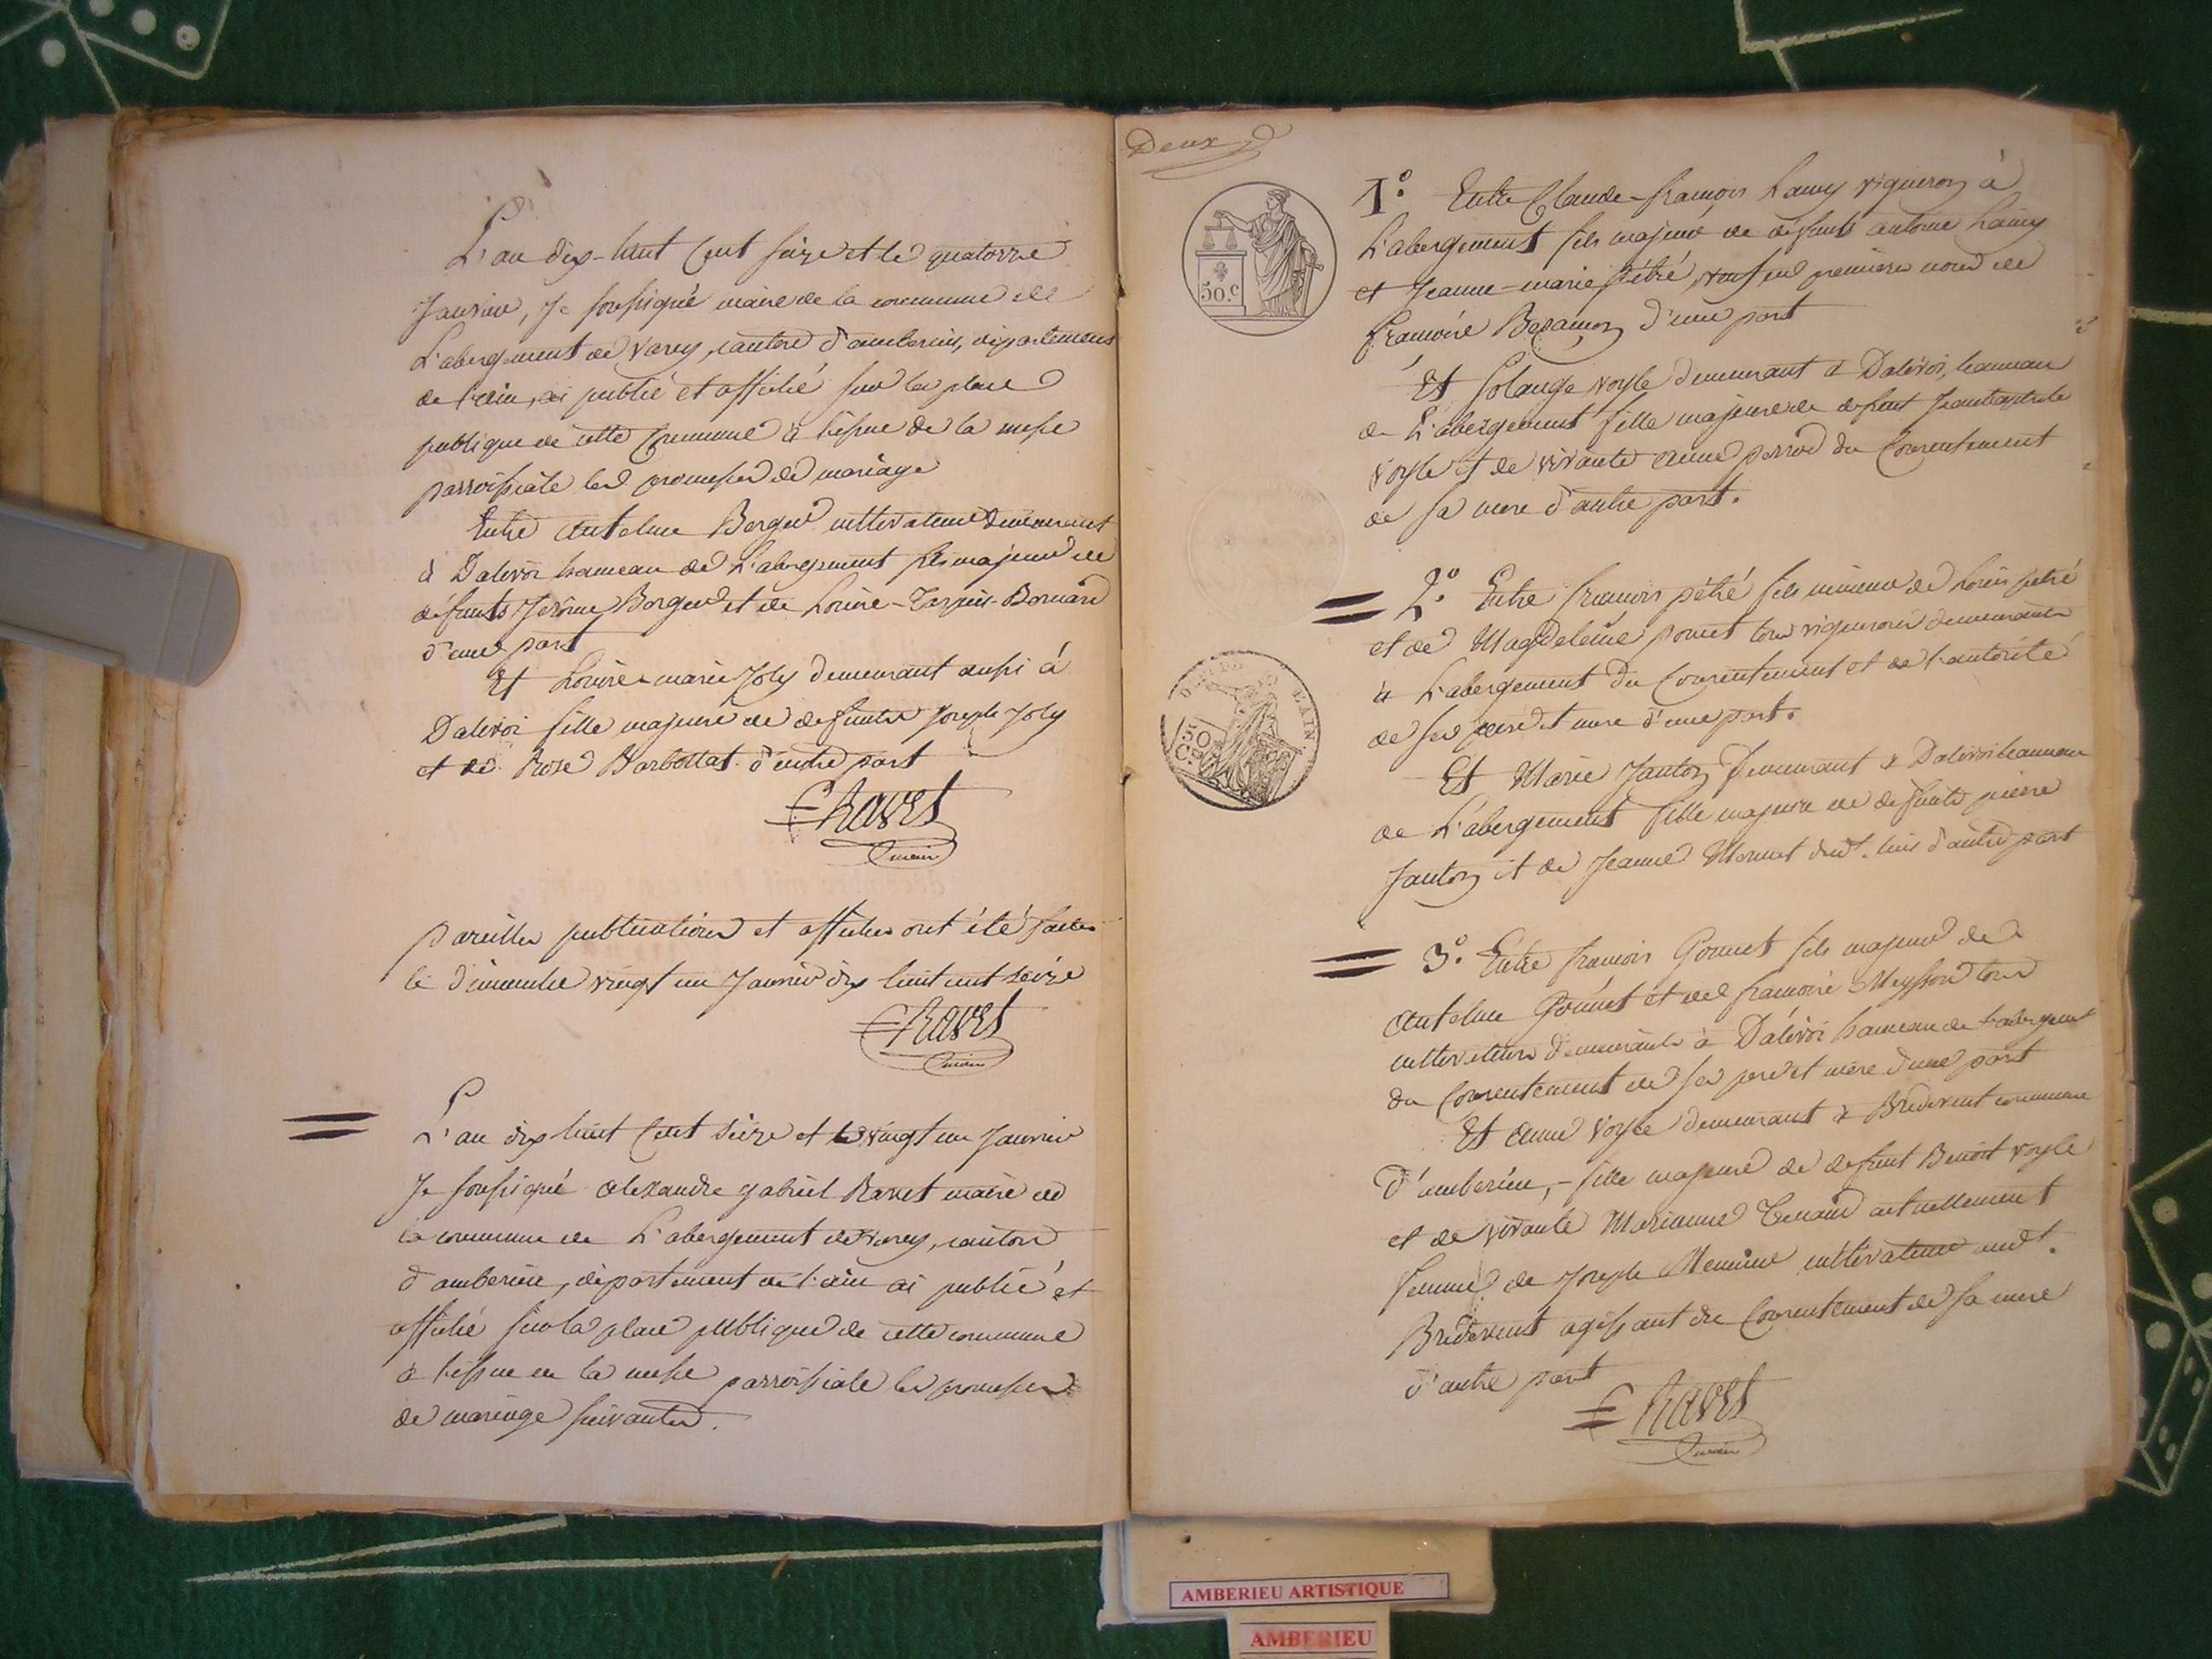 L'an dix-huit Cent seize et le quatorze
Janvier, Je soussigné maire de la commune de
L'abergement de Varey, canton d'amberieu, département
de l'ain, ai publié et affiché sur la place
publique de cette Commune à l'issue de la messe
parroissiale les promesses de mariage
Entre Antelme Berger cultivateur demeurant
à Dalivoi hameau de L'abergement fils majeur de
défunts Jerôme Berger et de Louise Bernard
d'une part
Et Louise-marie Joly demeurant aussi à
Dalivoi fille majeure de defunts Joseph Joly
et de Rose Barbollat d'autre part
Ravet
maire
pareilles publications et affiches ont été faites
le dimanche vingt un Janvier dix huit cent seize
Ravet
maire
L'an dix huit Cent seize et le vingt un Janvier
Je soussigné alexandre gabriel Ravet maire de
la commune de L'abergement de Varey, canton
d'amberieu, département de l'ain ai publié et
affiché sur la place publique de cette commune
à l'issue de la messe parroissiale les promesses
de mariage suivantes.
Deux
50.c
1° Entre Claude-françois Lamy vigneron à
L'abergement fils majeur de défunts antoine Lamy
et Jeanne-marie pétré, veuf en premiere noce de
françoise Bezançon d'une part
Et Solange voyle demeurant à Dalivoi, hameau
de L'abergement fille majeure de defunt Jeanbaptiste
voyle et de vivante anne perrod du Consentement
de sa mere d'autre part.
2° Entre françois pétré fils mineur de Louis pétré
et de Magdeleine ponet tous vignerons demeurants
à L'abergement du Consentement et de l'autorité
de ses pere et mere d'une part.
Et Marie Janton demeurant à Dalivoi hameau
de L'abergement fille majeure de defunts pierre
Janton et de Jeanne Mornet d'autre part
50
AIN.
3° Entre françois Gonnet fils majeur de
Antelme Gonnet et de françoise Meysson tous
cultivateurs demeurants à Dalivoi hameau de l'abergement
du Consentement de ses pere et mere d'une part
Et anne Voyle demeurant à Bredevent commune
d'amberieu, - fille majeure de defunt Benoit voyle
et de vivante Marianne Tenand actuellement
femme de Joseph cultivateur aud.t
Bredevent agissant du Consentement de sa mere
d'autre part
Ravet
maire
AMBERIEU ARTISTIQUE
AMBERIEU